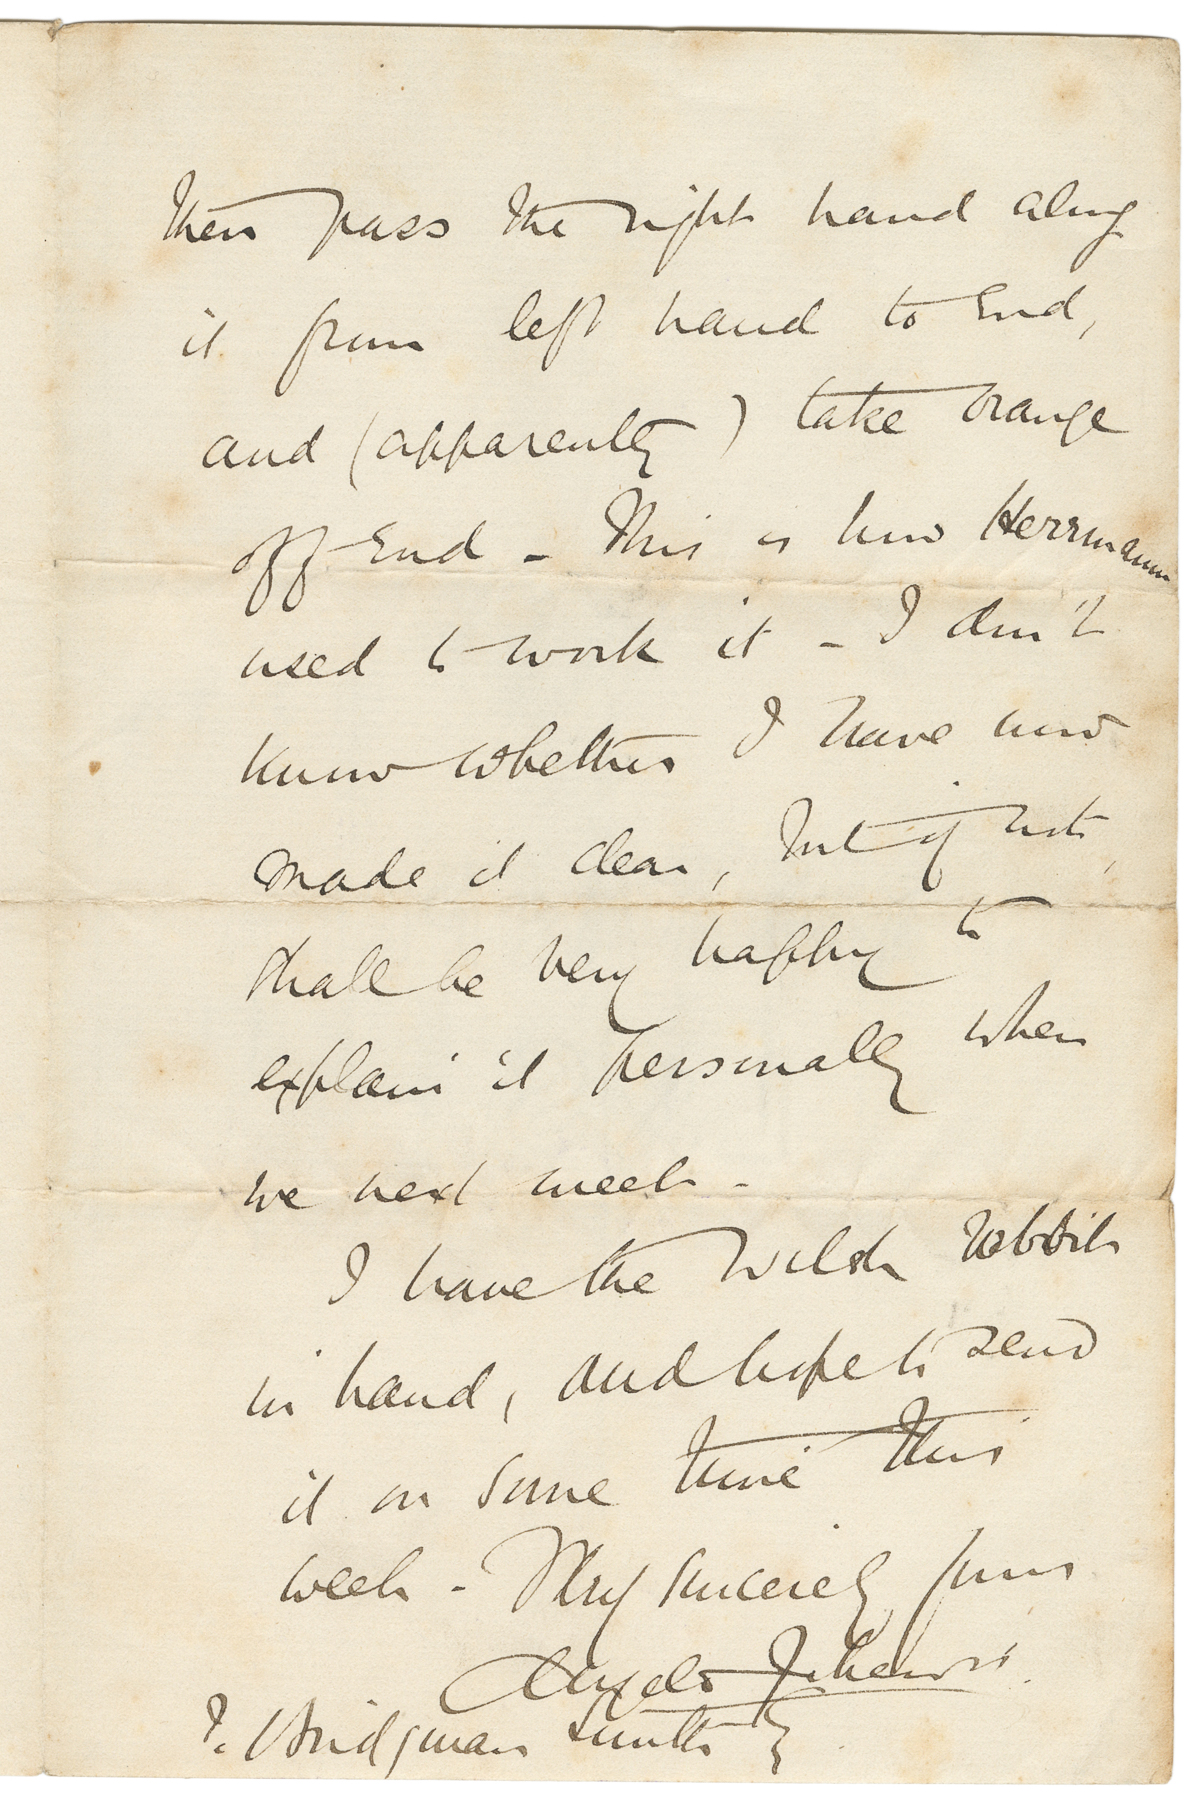 then pass the right hand along
it from left hand to End,
and (apparently) take orange
off End - This is how Herrmann
used to work it - I don't
know whether I have now
made it clear, but if not,
shall be very happy to
explain it personally when
we next meet -
I have the Welsh rabbit
in hand, and hope to send
it on some time this
week - Very sincerely yours
Angelo Lewis
J. Bridgman Smith Esq